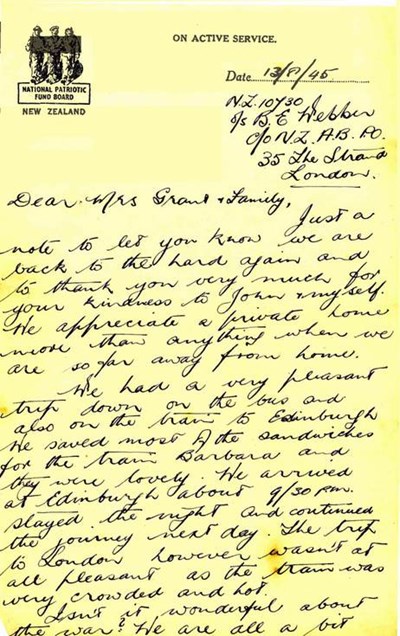 ON ACTIVE SERVICE.
NATIONAL PATRIOTIC
FUND BOARD
NEW ZEALAND
Date 13/8/45
N.Z. 10730
O/S B. E Webber
C/o N.Z. A.B. P.O.
35 The Strand
London.
Dear Mrs Grant & Family,
Just a
note to let you know we are
back to the hard again and
to thank you very much for
your kindness to John & myself.
We appreciate a private home
more than anything when we
are so far away from home.
We had a very pleasant
trip down on the bus and
also on the train to Edinburgh
We saved most of the sandwiches
for the train Barbara and
they were lovely. We arrived
at Edinburgh about 9/30 pm.
stayed the night and continued
the journey next day. The trip
to London however wasn't at
all pleasant as the train was
very crowded and hot.
Isn't it wonderful about
the war? We are all a bit